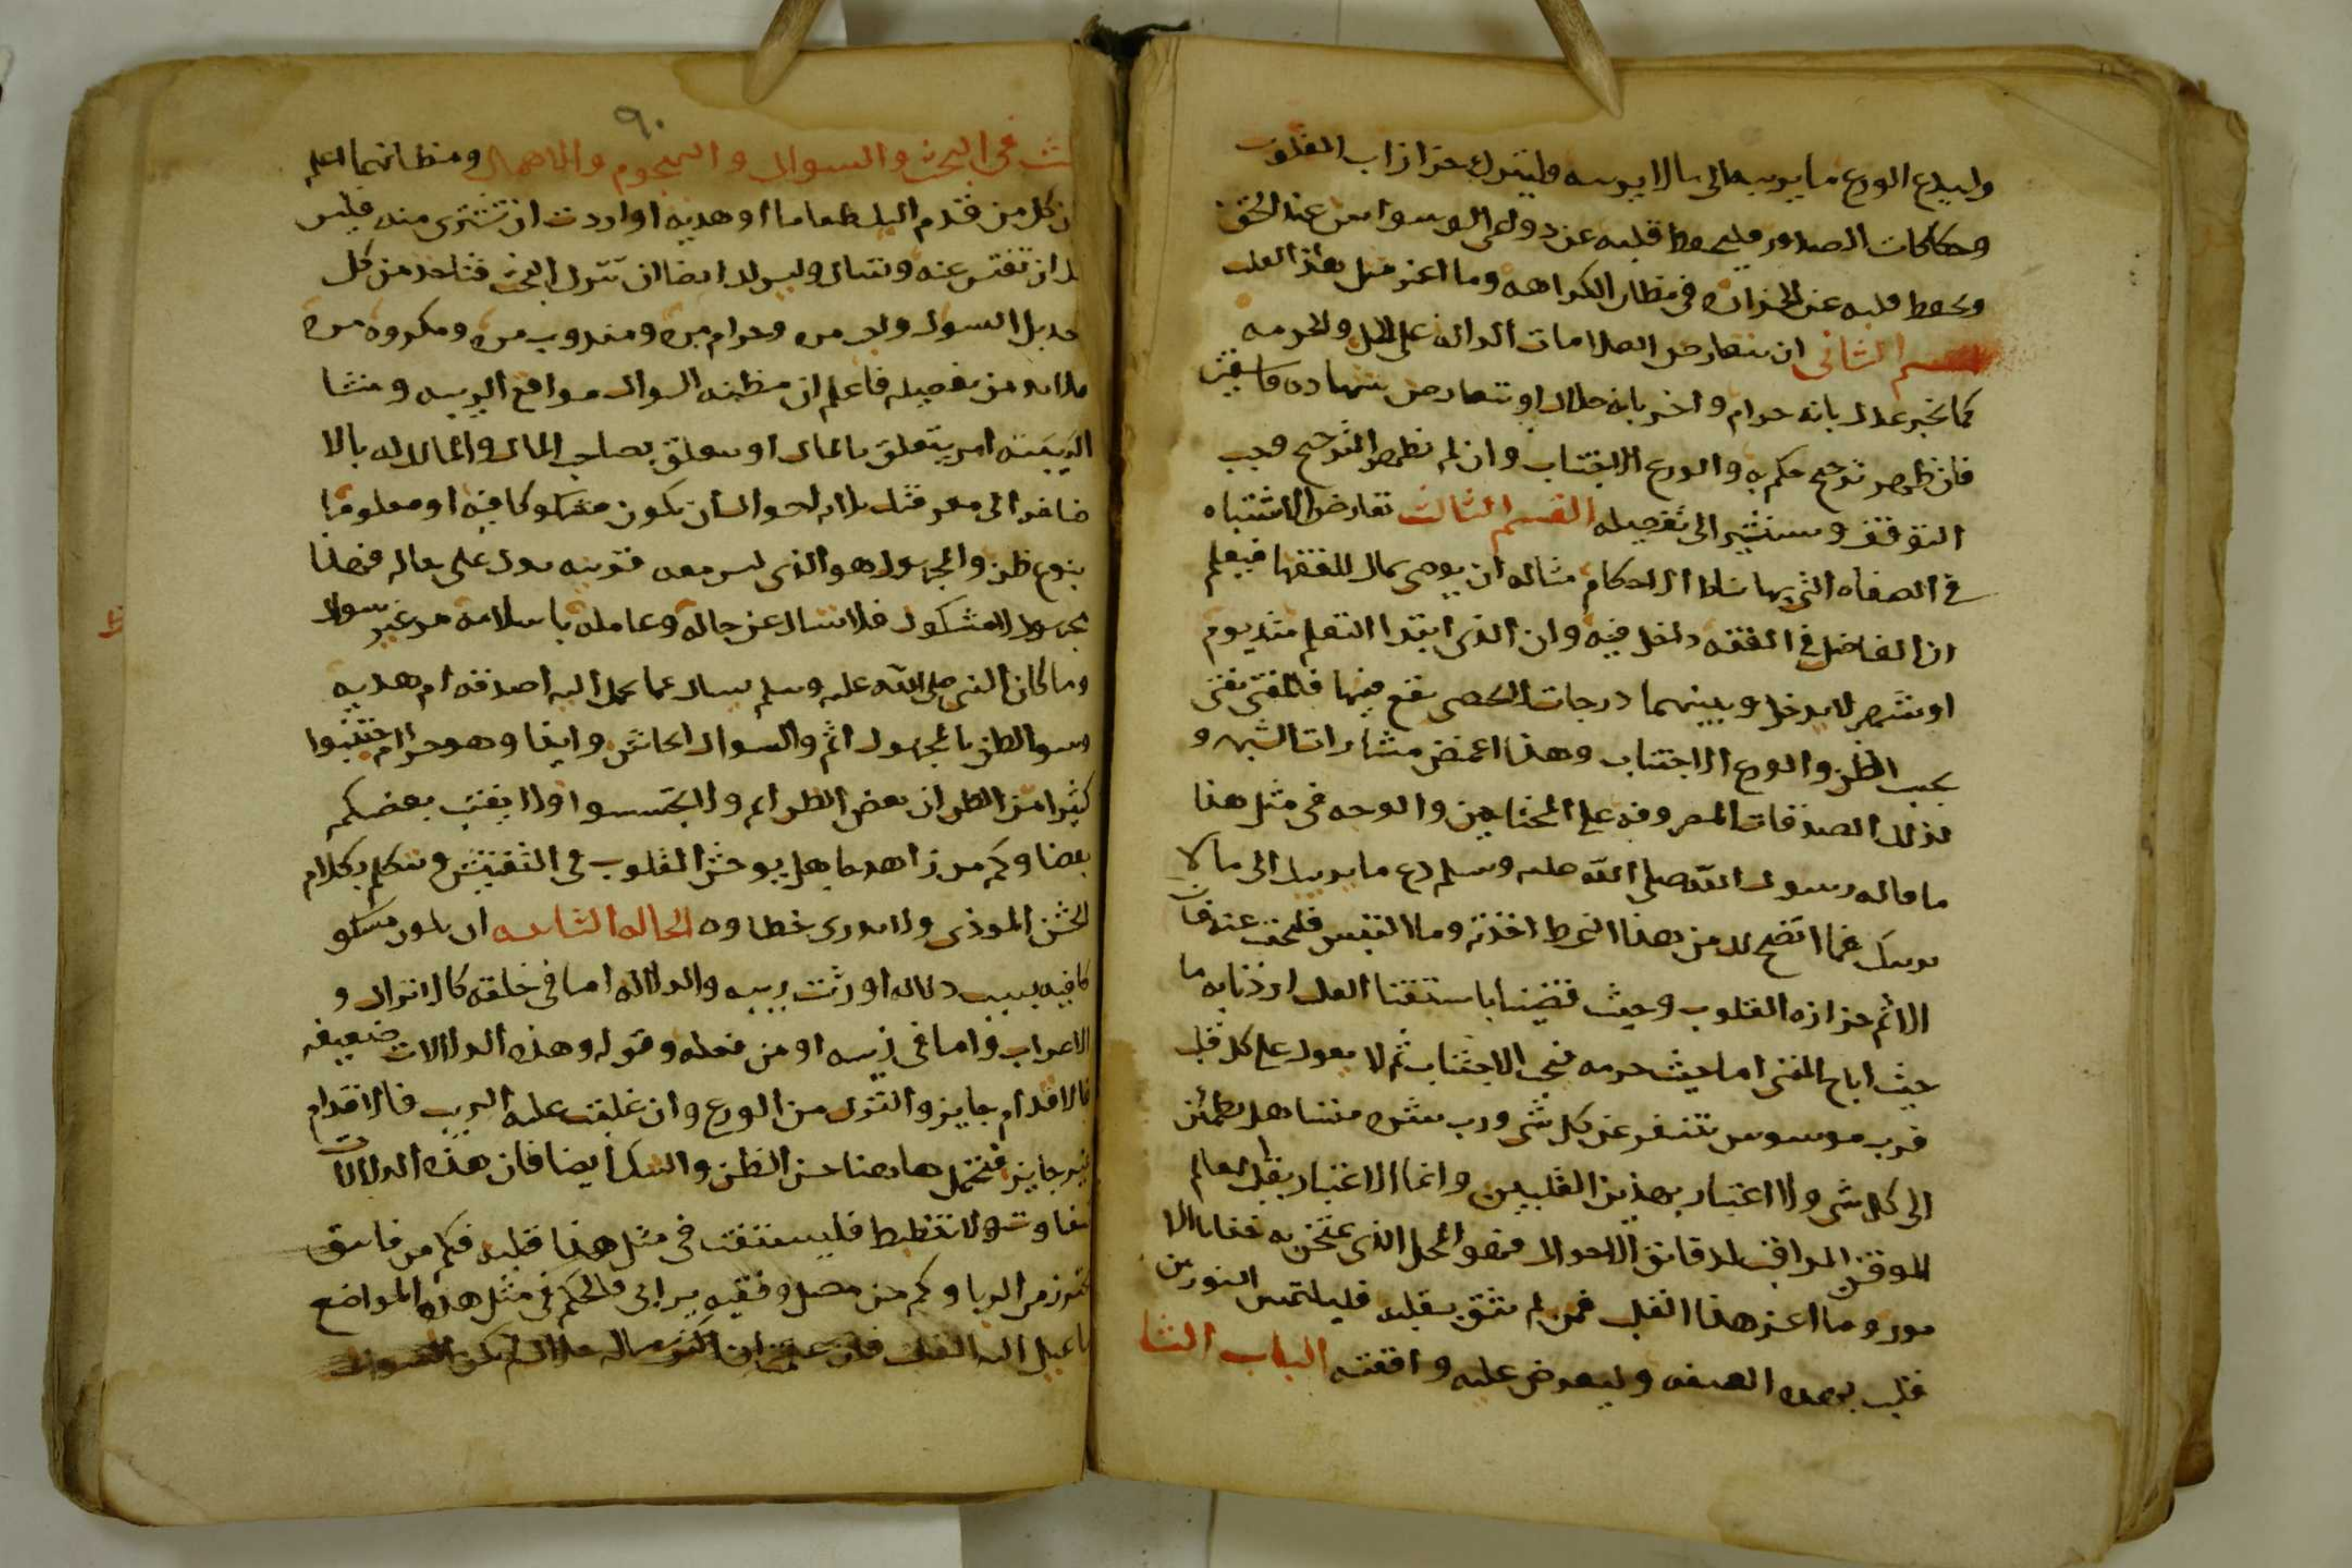 وليدع الورع ما يريبه الى ما لا يريبه وليترك حزازات القلوب
وحكاكات الصدور وليحفظ قلبه عن دواعى الوسواس عند الحق
ويحفظ قلبه عن الحزازه فى مظان الكراهه وما اعز مثل هذا القلب
القسم الثانى ان تتعارض العلامات الداله على الحل والحرمه
كما يخبر عدل بانه حرام واخر بانه حلال او تتعارض شهاده فاسقين
فان ظهر ترجيح حكم به والورع الاجتناب وان لم يظهر الترجيح وجب
التوقف وسنشير الى تفصيله القسم الثالث تعارض الاشتباه
فى الصفاه التى بها تناط الاحكام مثاله ان يوصى بمال للفقها فيعلم
ان الفاضل فى الفقه داخل فيه وان الذى ابتدا التعلم منذ يوم
او شهر لا يدخل وبينهما درجات لا تحصى يقع فيها فالمفتى يفتى
بحسب الظن والورع الاجتناب وهذا اغمض مثارات الشبهه و
كذلك الصدقات المصروفه على المحتاجين والوجه فى مثل هذا
ما قاله رسول الله صلى الله عليه وسلم دع ما يريبك الى ما لا
يريبك فما اتضح لك من هذا النمط اخذته وما التبس فليجتنب عنه فان
الاثم حزازه القلوب وحيث قضينا باستفتا القلب اردنا به ما
حيث اباح المفتى اما حيث حرمه فيجب الاجتناب ثم لا يعول على كل قلب
فرب موسوس تنفر عن كل شى ورب شره متساهل يطمئن
الى كل شى ولا اعتبار بهذين القلبين وانما الاعتبار بقلب العالم
الموفق المراقب لدقائق الاحوال فهو المحل الذى يمتحن به خفايا الا
مور وما اعز هذا القلب فمن لم يثق بقلبه فليلتمس النور من
قلب بهذه الصفه وليعرض عليه واقعته الباب الثا
لث فى البحث والسوال والهجوم والاهمال ومظانهما اعلم
ان كل من قدم اليك طعاما او هديه او اردت ان تشترى منه فليس
لك ان تفتش عنه وتسال وليس لك ايضا ان تترك البحث فتاخذ من كل
احد بل السوال واجب مره وحرام مره ومندوب مره ومكروه مره
فلا بد من تفصيله فاعلم ان مظنه السوال مواقع الريبه ومنشا
الريبه امر يتعلق بالمال او يتعلق بصاحب المال والمالك له بالا
ضافه الى معرفتك ثلاثه احوال ان يكون مشكوكا فيه او معلوما
بنوع ظن والمجهول هو الذى ليس معه قرينه تدل على حاله فهذا
مجهول لا مشكوك فلا تسال عن حاله وعامله باسلامه من غير سوال
وما كان النبى صلى الله عليه وسلم يسال عما يحمل اليه اصدقه ام هديه
وسو الظن بالمجهول اثم والسوال ايحاش وايذا وهو حرام اجتنبوا
كثيرا من الظن ان بعض الظن اثم ولا تجسسوا ولا يغتب بعضكم
بعضا وكم من زاهد جاهل يوحش القلوب فى التفتيش ويتكلم بكلام
الخشن الموذى ولا يدرى خطاوه الحاله الثانيه ان يكون مشكو
كا فيه بسبب دلاله اورثت ريبه والدلاله اما فى خلقته كالاتراك و
الاعراب واما فى زيه او من فعله وقوله وهذه الدلالات ضعيفه
فالاقدام جايز والترك من الورع وان غلبت عليه الريب فالاقدام
غير جايز فتحتمل هاهنا حسن الظن والشك ايضا فان هذه الدلالات
تتفاوت ولا تنضبط فليستفت فى مثل هذا قلبه فكم من فاسق
تحرز من الربا وكم من مصل وفقيه يرابى فالحكم فى مثل هذه المواضع
ما يميل اليه القلب فان علمت ان اكثر ماله حلال لم يكن السوال
ط
٩٠